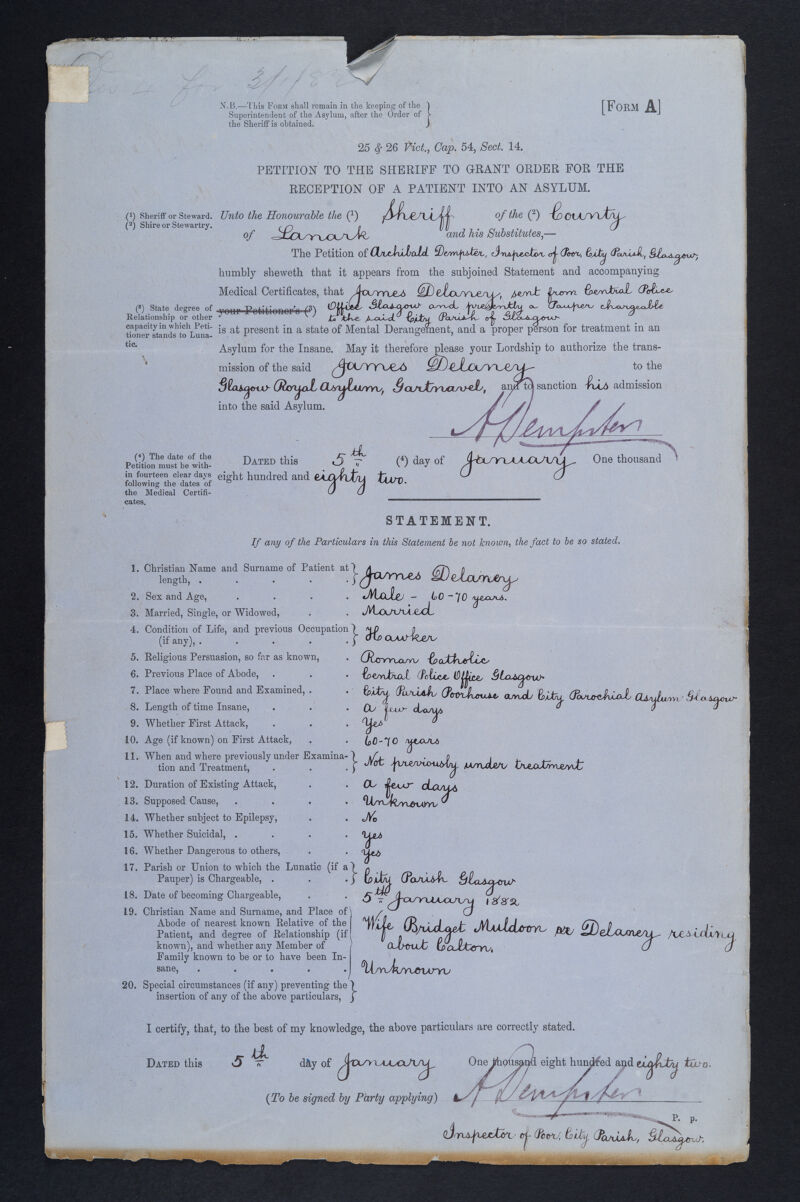 for 3/1/82
N.B.—This Form shall remain in the keeping of the
Superintendent of the Asylum, after the Order of
the Sheriff is obtained.
[Form A]
25 & 26 Vict., Cap. 54, Sect. 14.
PETITION TO THE SHERIFF TO GRANT ORDER FOR THE
RECEPTION OF A PATIENT INTO AN ASYLUM.
(1) Sheriff or Steward.
(2) Shire or Stewartry.
Unto the Honourable the (1) Sheriff of the (2) County
of Lanark and his Substitutes,—
The Petition of Archibald Dempster, Inspector of Poor, City Parish, Glasgow,
humbly sheweth that it appears from the subjoined Statement and accompanying
Medical Certificates, that James Delaney, sent from Central Police
(3) State degree of
Relationship or other
capacity in which Peti-
tioner stands to Luna-
tic.
your Petitioner's (3) Office Glasgow and presently a Pauper chargeable
to the said City Parish of Glasgow
is at present in a state of Mental Derangement, and a proper person for treatment in an
Asylum for the Insane. May it therefore please your Lordship to authorize the trans-
mission of the said James Delaney to the
Glasgow Royal Asylum, Gartnavel, and to sanction his admission
into the said Asylum.
A Dempster
(4) The date of the
Petition must be with-
in fourteen clear days
following the dates of
the Medical Certifi-
cates.
Dated this 5th (4) day of January One thousand
eight hundred and eighty two.
STATEMENT.
If any of the Particulars in this Statement be not known, the fact to be so stated.
1. Christian Name and Surname of Patient at
length, . . . . . James Delaney
2. Sex and Age, . . . . Male - 60-70 years.
3. Married, Single, or Widowed, . . Married
4. Condition of Life, and previous Occupation
(if any), . . . . . Hawker
5. Religious Persuasion, so far as known, . Roman Catholic
6. Previous Place of Abode, . . . Central Police Office Glasgow
7. Place where Found and Examined, . . City Parish Poorhouse and City Parochial Asylum Glasgow
8. Length of time Insane, . . . a few days
9. Whether First Attack, . . . Yes
10. Age (if known) on First Attack, . . 60-70 years
11. When and where previously under Examina-
tion and Treatment, . . . Not previously under treatment
12. Duration of Existing Attack, . . a few days
13. Supposed Cause, . . . . Unknown
14. Whether subject to Epilepsy, . . No
15. Whether Suicidal, . . . . Yes
16. Whether Dangerous to others, . . Yes
17. Parish or Union to which the Lunatic (if a
Pauper) is Chargeable, . . . City Parish Glasgow
18. Date of becoming Chargeable, . . 5th January 1882
19. Christian Name and Surname, and Place of
Abode of nearest known Relative of the
Patient, and degree of Relationship (if
known), and whether any Member of
Family known to be or to have been In-
sane, . . . . .
Wife Bridget Muldoon or Delaney residing
about Calton.
Unknown
20. Special circumstances (if any) preventing the
insertion of any of the above particulars,
I certify, that, to the best of my knowledge, the above particulars are correctly stated.
Dated this 5th day of January One thousand eight hundred and eighty two.
(To be signed by Party applying) A Dempster
P. p.
Inspector of Poor, City Parish, Glasgow.